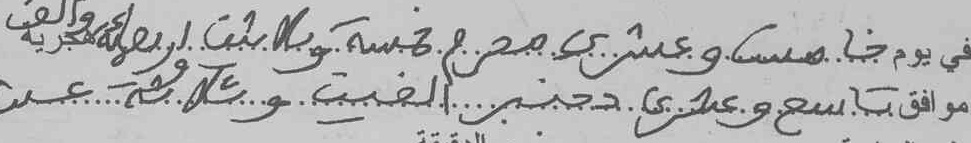 في يوم خامس وعشري محرم خمسة وثلاثين اربعمائة والف هجرية
موافق تاسع وعشري دجنبر الفين وثلاثة عشر
الدقيقة